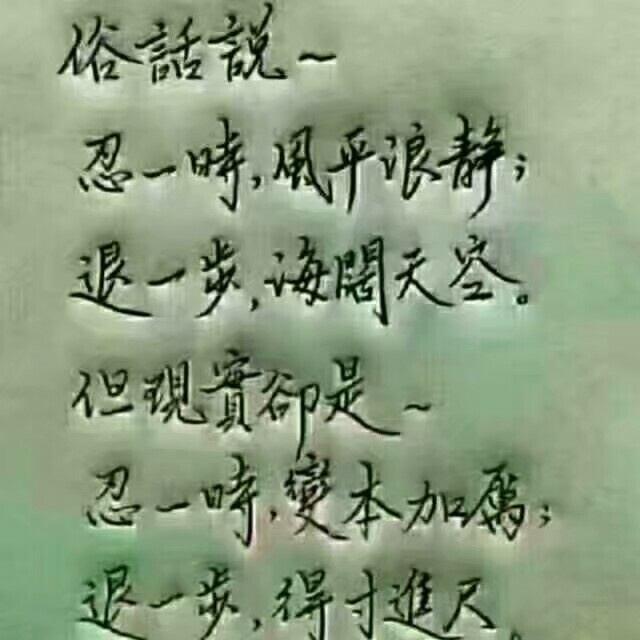 俗話說~
忍一時,風平浪静;
退一步,海闊天空。
但現實卻是~
忍一時,變本加厲;
退一步,得寸進尺。